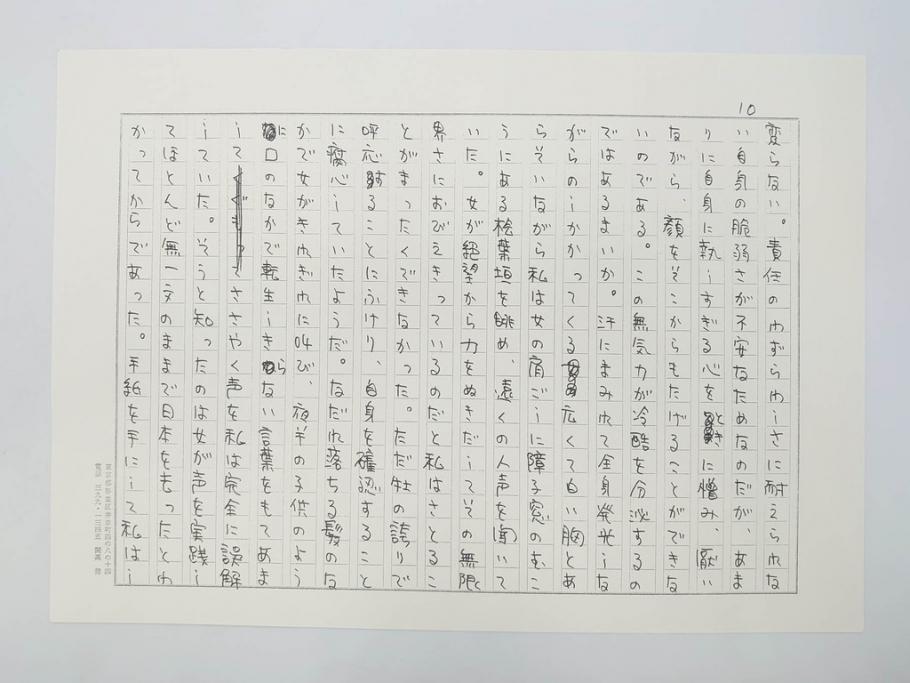 10
変らない。責任のわずらわしさに耐えられな
い自身の脆弱さが不安なためなのだが、あま
りに自身に執しすぎる心をときに憎み、厭い
ながら、顔をそこからもたげることができな
いのである。この無気力が冷酷を分泌するの
ではあるまいか。汗にまみれて全身発光しな
がらのしかかってくる広くて白い胸とあ
らそいながら私は女の肩ごしに障子窓のむこ
うにある桧葉垣を眺め、遠くの人声を聞いて
いた。女が絶望から力をぬきだしてその無限
界さにおびえきっているのだと私はさとるこ
とがまったくできなかった。ただ牡の誇りで
呼応することにふけり、自身を確認すること
に腐心していたようだ。なだれ落ちる髪のな
かで女がきれぎれに叫び、夜半の子供のよう
に口のなかで転生しきらない言葉をもてあま
してささやく声を私は完全に誤解
していた。そうと知ったのは女が声を実践し
てほとんど無一文のままで日本を去ったとわ
かってからであった。手紙を手にして私はし
東京都杉並区井草町四の八の十四
電話 三九九・一三四五 開高 健